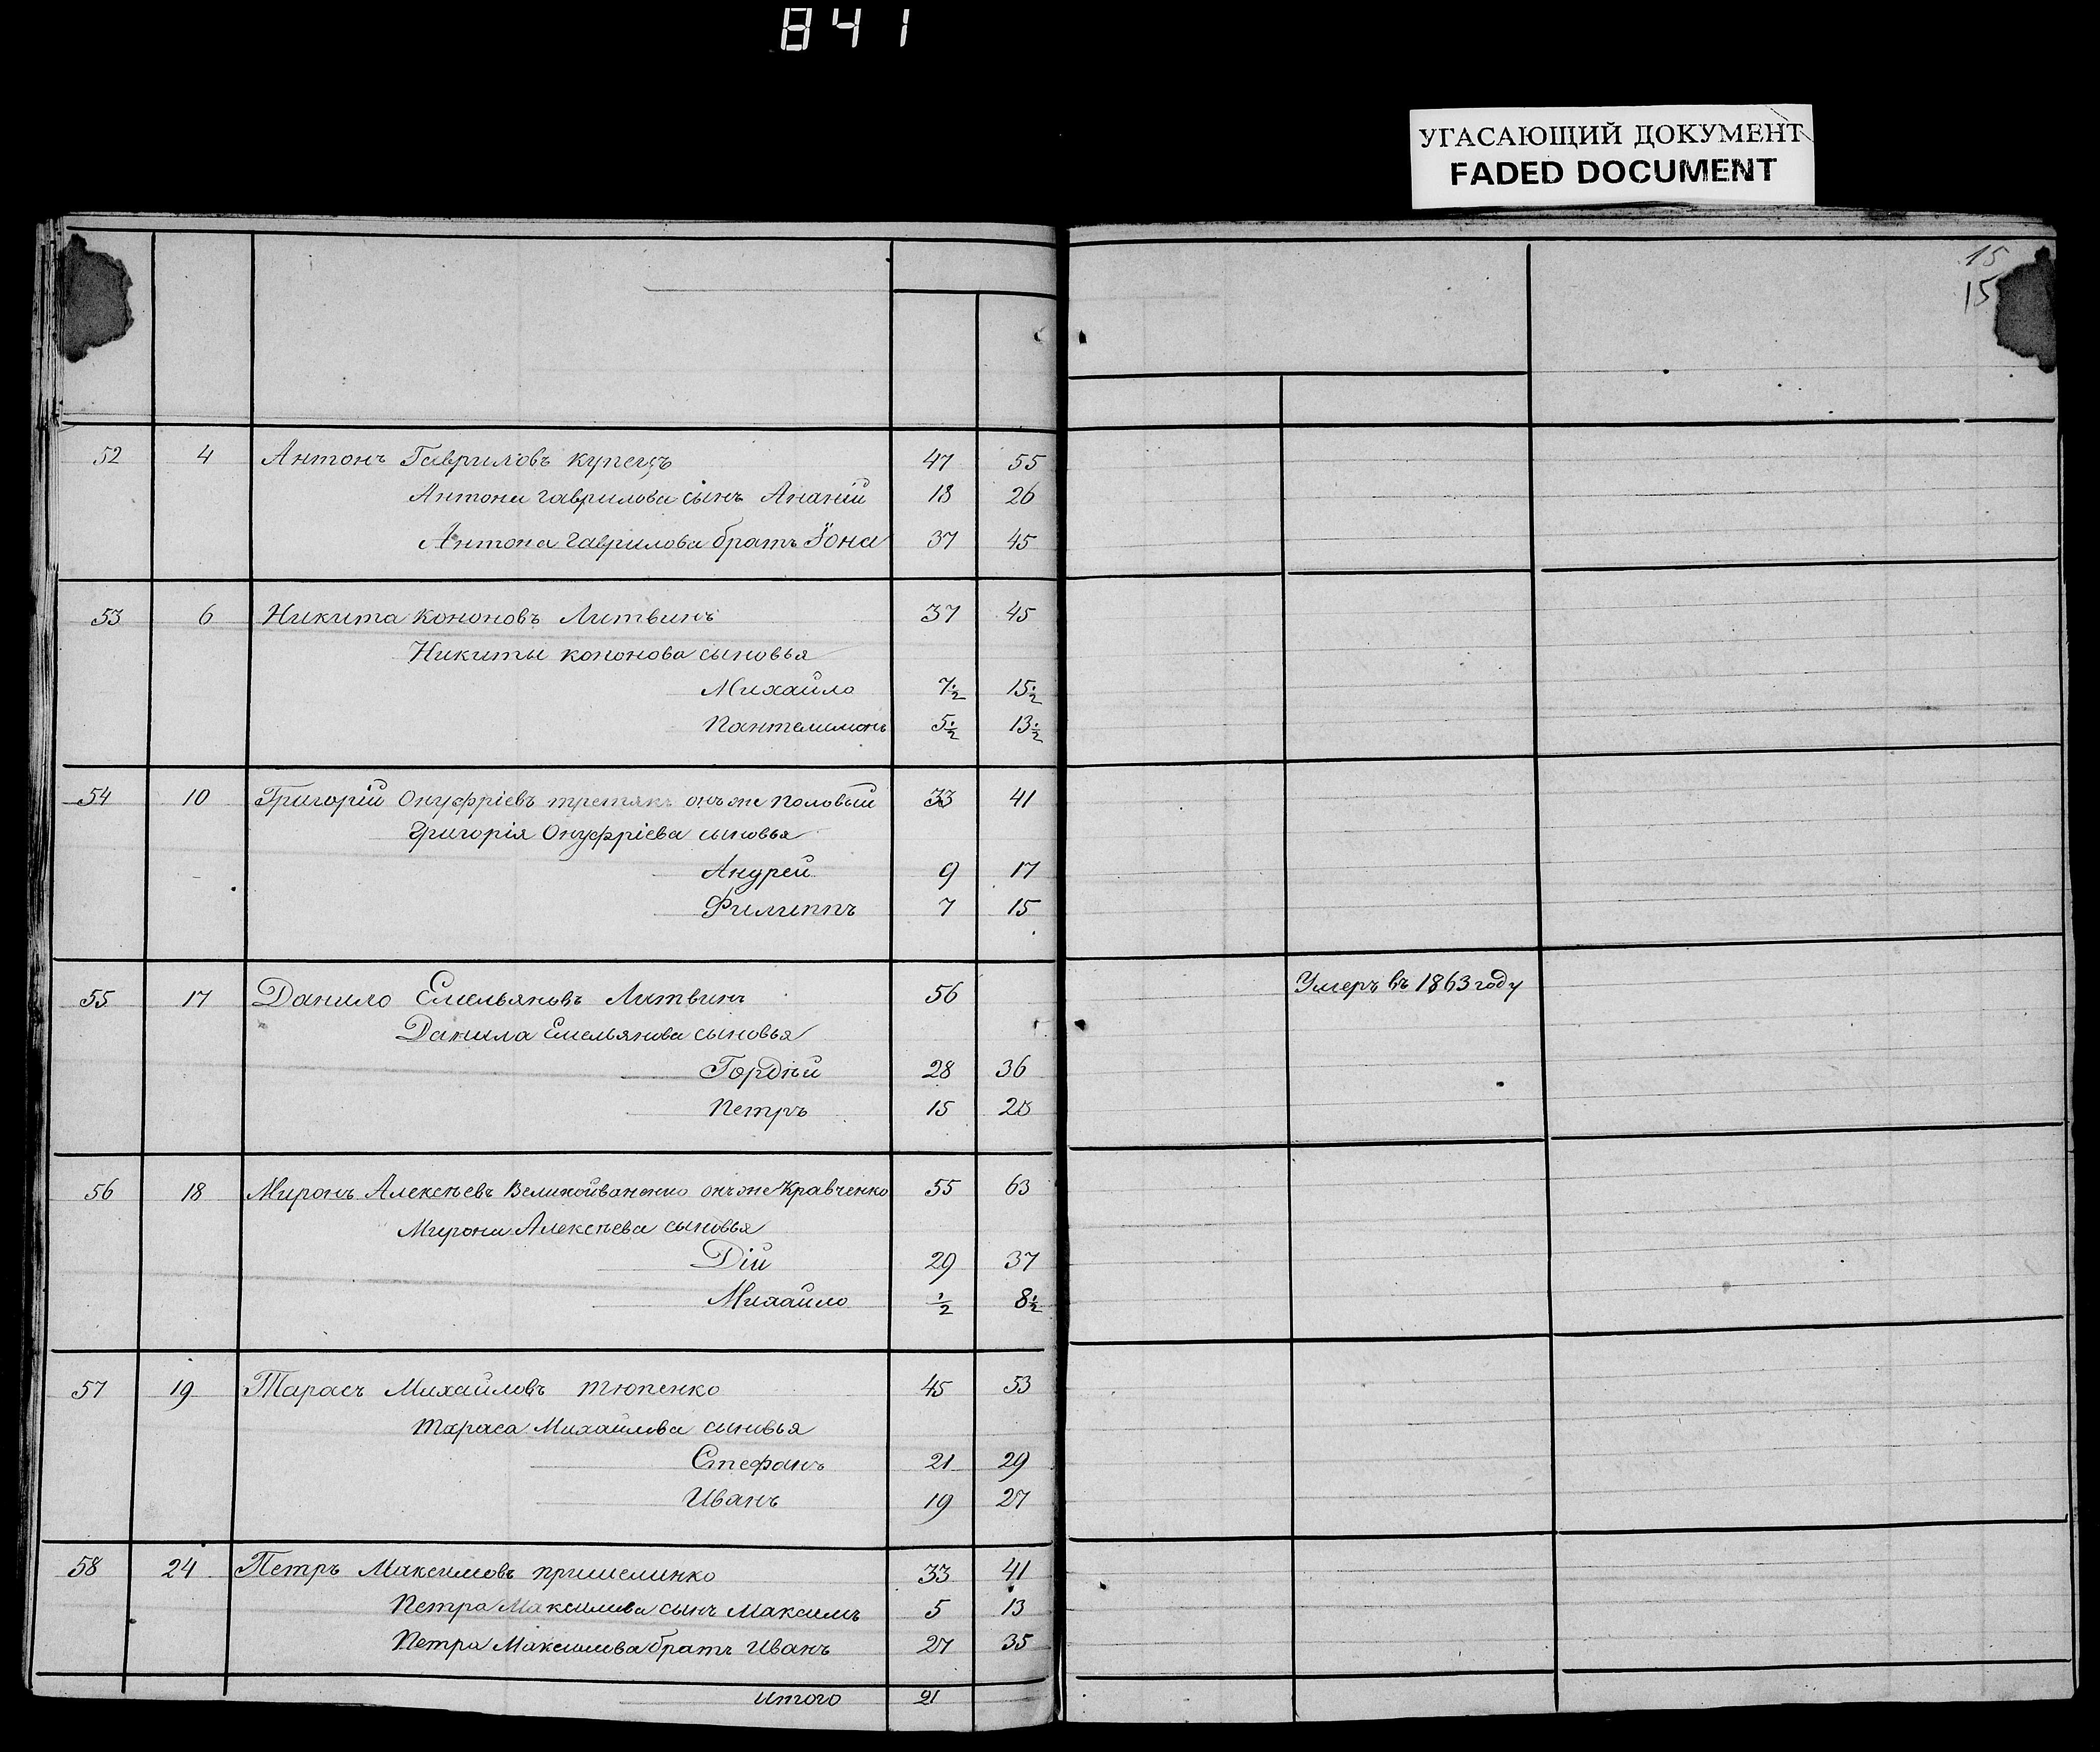 841
УГАСАЮЩИЙ ДОКУМЕНТ
FADED DOCUMENT
15
15
52 4 Антонъ Гавриловъ купецъ 47 55
Антона Гаврилова сынъ Ананій 18 26
Антона Гаврилова братъ Іона 37 45
53 6 Никита Кононовъ Литвинъ 37 45
Никиты Кононова сыновья
Михайло 7½ 15½
Пантелимонъ 5½ 13½
54 10 Григорій Онуфріевъ третякъ онъ же половый 33 41
Григорія Онуфріева сыновья
Андрей 9 17
Филиппъ 7 15
55 17 Данило Емельяновъ Литвинъ 56 Умеръ въ 1863 году
Данила Емельянова сыновья
Гордѣй 28 36
Петръ 15 23
56 18 Миронъ Алексѣевъ Великоиваненко онъ же Кравченко 55 63
Мирона Алексѣева сыновья
Дій 29 37
Михайло ½ 8½
57 19 Тарасъ Михайловъ тюпенко 45 53
Тараса Михайлова сыновья
Стефанъ 21 29
Иванъ 19 27
58 24 Петръ Максимовъ 33 41
Петра Максимова сынъ Максимъ 5 13
Петра Максимова братъ Иванъ 27 35
итого 21